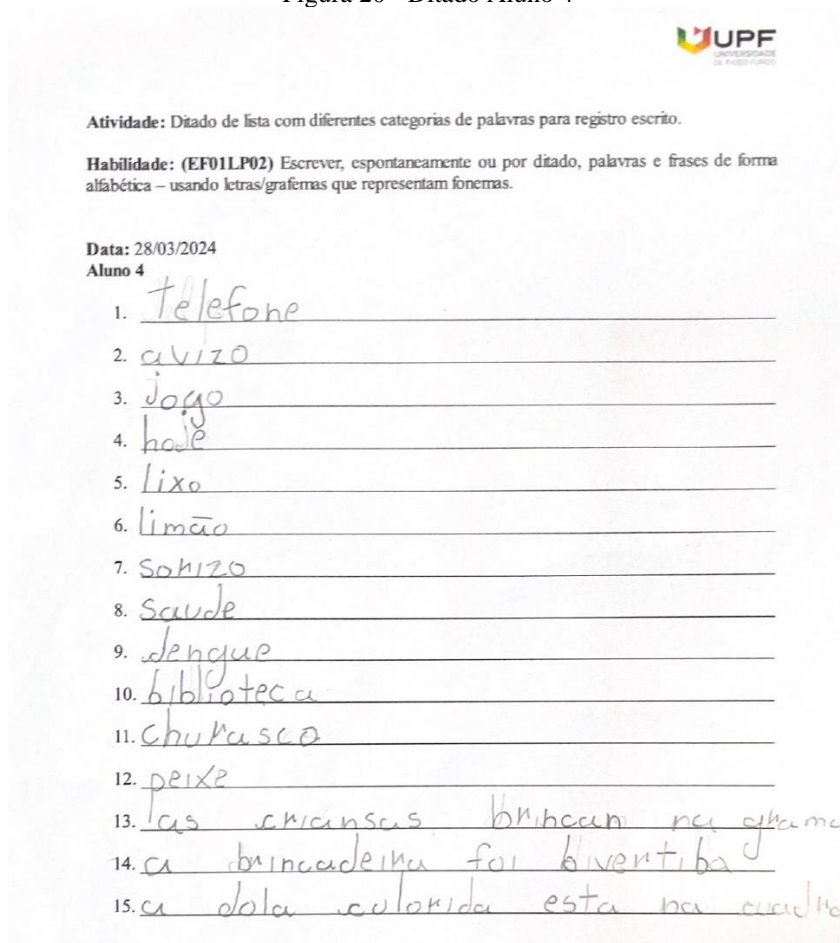 Figura 20 - Ditado Aluno 4
UPF
UNIVERSIDADE
DE PASSO FUNDO
Atividade: Ditado de lista com diferentes categorias de palavras para registro escrito.
Habilidade: (EF01LP02) Escrever, espontaneamente ou por ditado, palavras e frases de forma
alfabética – usando letras/grafemas que representam fonemas.
Data: 28/03/2024
Aluno 4
1. Telefone
2. avizo
3. Jogo
4. hoje
5. lixo
6. limão
7. Sorizo
8. Saude
9. dengue
10. biblioteca
11. churasco
12. peixe
13. as criansas brincan na grama
14. a brincadeira foi bivertiba
15. a dola colorida esta na cuadra